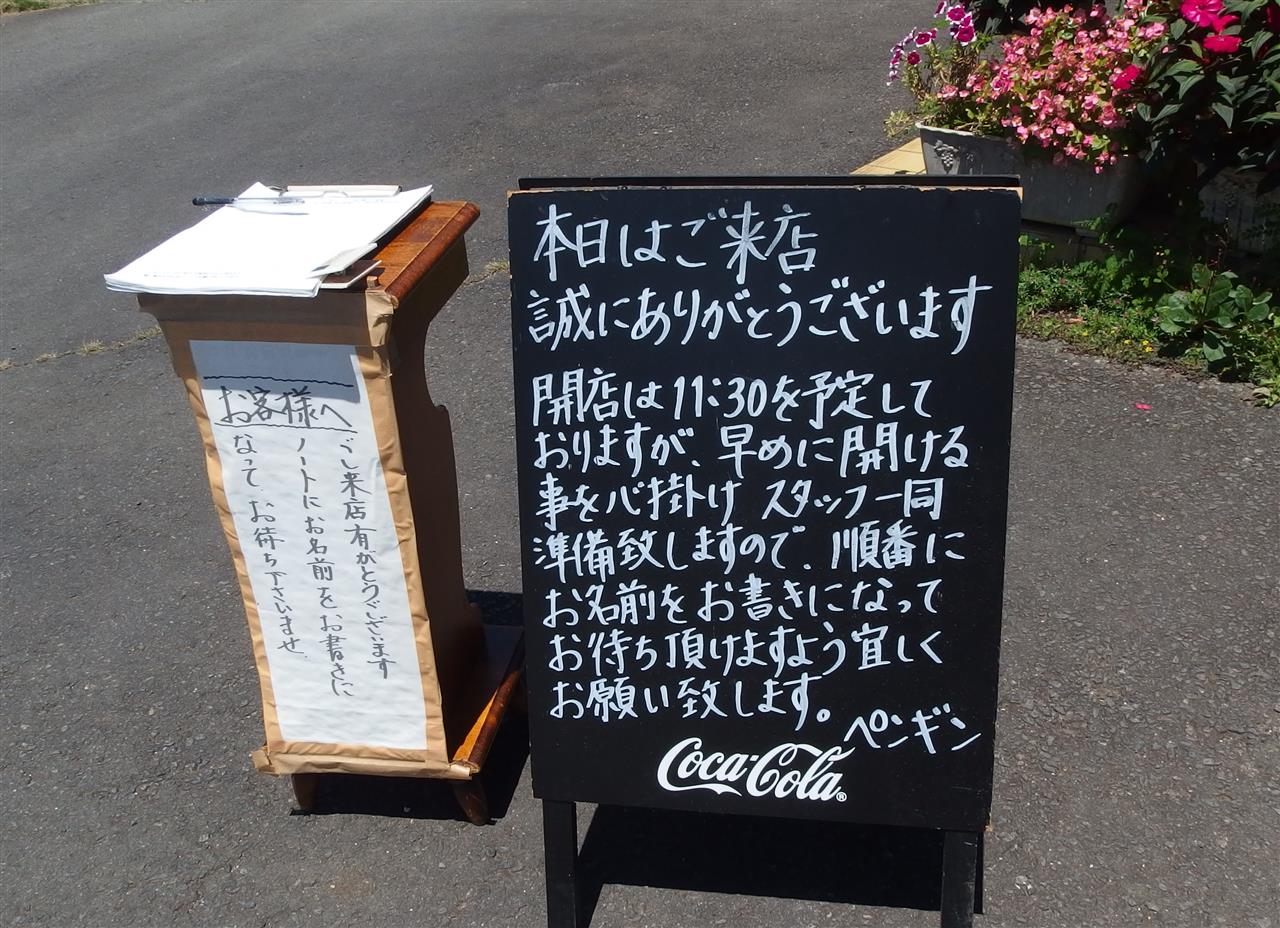 本日はご来店
誠にありがとうございます
開店は11:30を予定して
おりますが、早めに開ける
事を心掛け スタッフ一同
準備致しますので、順番に
お名前をお書きになって
お待ち頂けますよう宜しく
お願い致します。
ペンギン
Coca-Cola®
お客様へ
ご来店有がとうございます
ノートにお名前を、お書きに
なって、お待ち下さいませ